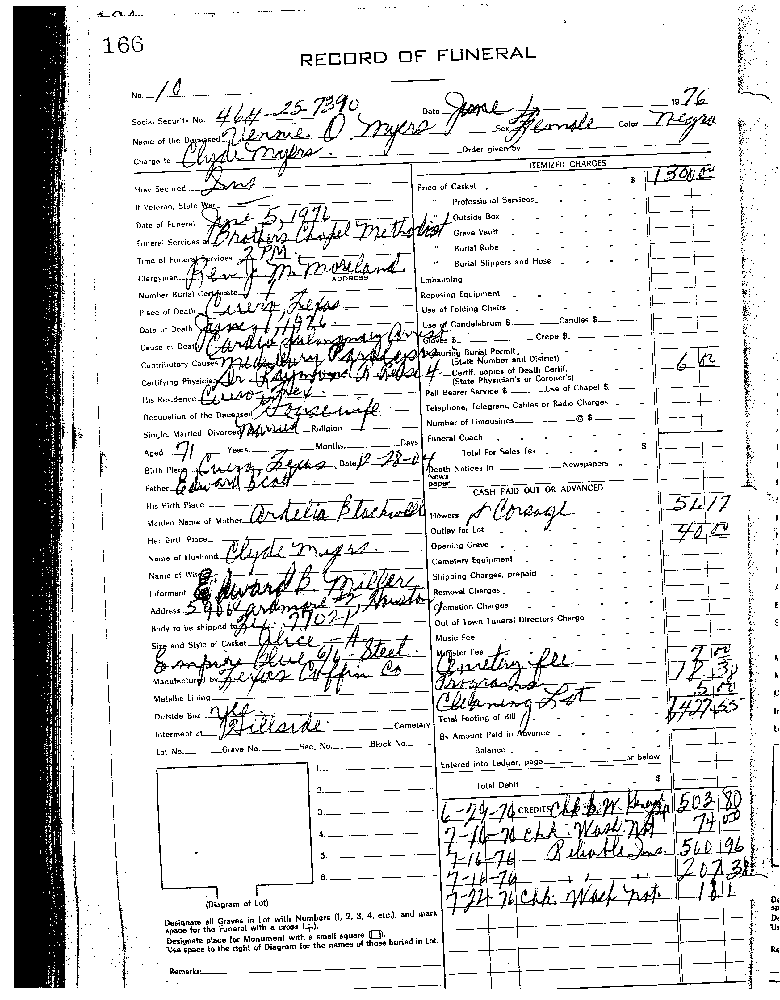 166
RECORD OF FUNERAL
No. 10
Social Security No. 464-25-7390 Date June 1 1976
Name of the Deceased Vennie O Myers Sex Female Color Negro
Charge to Clyde Myers. Order given by
How Secured Ins
If Veteran, State War
Date of Funeral June 5, 1976
Funeral Services at Brothers Chapel Methodist
Time of Funeral Services 2 PM
Clergyman Rev J. M. Moreland
ADDRESS
Number Burial Certificate
Place of Death Cuero, Texas
Date of Death June 1, 1976
Cause of Death Cardio Pulmonary Arrest
Contributory Causes
Certifying Physician Dr. Raymond A Reese
His Residence Cuero, Tex.
Occupation of the Deceased Housewife
Single, Married, Divorced Married Religion
Aged 71 Years Months Days
Birth Place Cuero, Texas Date 12-28-04
Father Edward
His Birth Place
Maiden Name of Mother Ardelia Blackwell
Her Birth Place
Name of Husband Clyde Myers.
Name of Wife
Informant Edward B. Miller
Address Ardmore Houston
Body to be shipped to Tex. 77021
Size and Style of Casket Alice - A
Empire Blue 6/6 Steel
Manufactured by Texas Coffin Co
Metallic Lining
Outside Box Yes
Interment at Hillside Cemetery
Lot No. Grave No. Sec. No. Block No.
1.
2.
3.
4.
5.
6.
(Diagram of Lot)
Designate all Graves in Lot with Numbers (1, 2, 3, 4, etc.), and mark
space for the Funeral with a cross (+).
Designate place for Monument with a small square (□).
Use space to the right of Diagram for the names of those buried in Lot.
Remarks
ITEMIZED CHARGES
Price of Casket $ 1300.00
" Professional Services
" Outside Box
" Grave Vault
" Burial Robe
" Burial Slippers and Hose
Embalming
Reposing Equipment
Use of Folding Chairs
Use of Candelabrum $ Candles $
Gloves $ Crepe $
Securing Burial Permit
(State Number and District)
4 Certif. copies of Death Certif. 6 00
(State Physician's or Coroner's)
Pall Bearer Service $ Use of Chapel $
Telephone, Telegram, Cables or Radio Charges
Number of Limousines @ $
Funeral Coach
Total For Sales Tax $
Death Notices in Newspapers
News
paper
CASH PAID OUT OR ADVANCED
Flowers & Corsage 51 17
Outlay for Lot 40 00
Opening Grave
Cemetery Equipment
Shipping Charges, prepaid
Removal Charges
Cremation Charges
Out of Town Funeral Directors Charge
Music Fee
Minister Fee
Cemetery fee 7 00
Programs
Cleaning Lot 5 00
Total Footing of Bill 1427 55
By Amount Paid in Advance
Balance
Entered into Ledger, page or below
Total Debit $
CREDITS
6-29-76 503 80
7-16-76 Chk. Wash. Nat 74 00
7-16-76 Reliable Ins. 560 96
7-16-76 " " 207 38
7-22-76 Chk. Wash Nat.